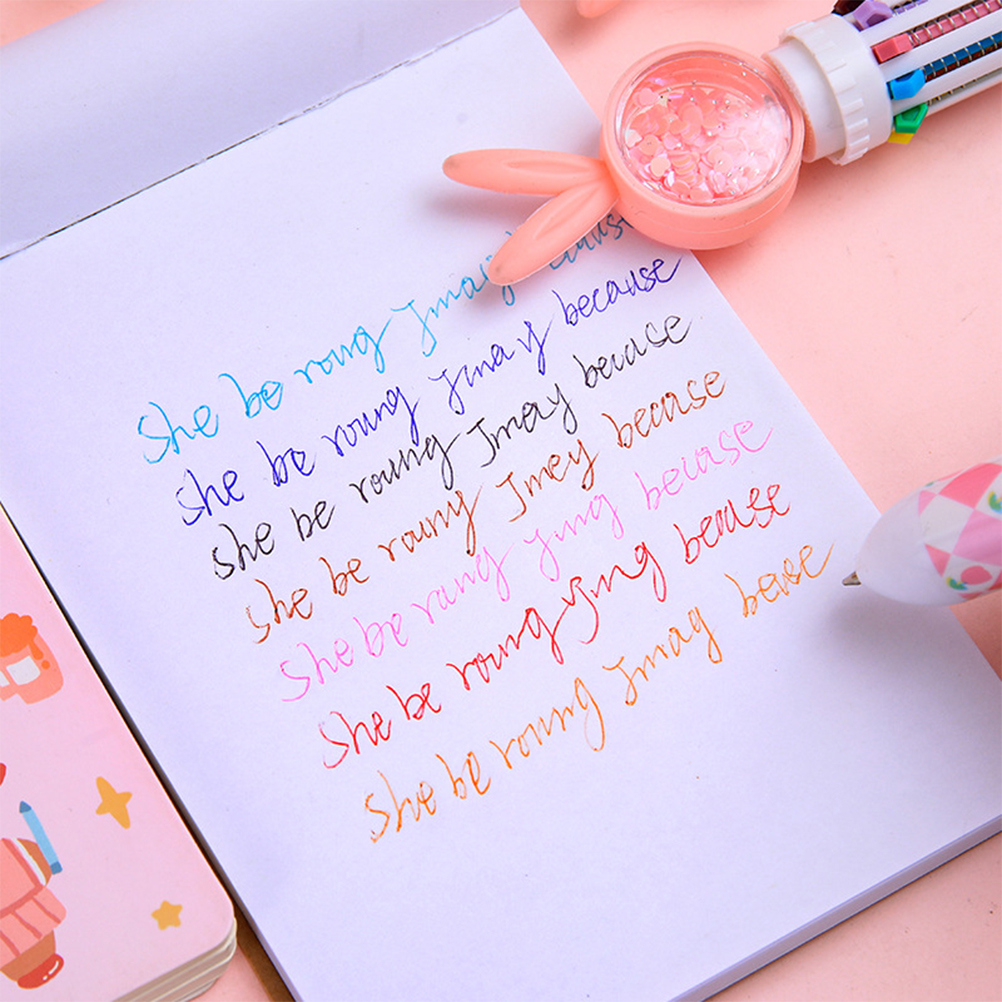 she be roung Jmay cause
she be roung Jmay because
she be roung Jmay becuase
she be rouny Jmey becase
she be rang ying becase
she be roung ying becase
she be roung Jmag becse